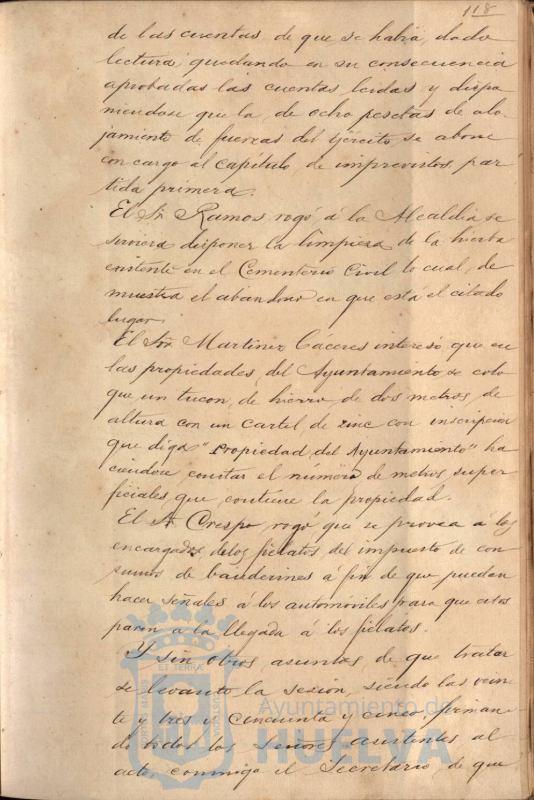 118
de las cuentas de que se había dado
lectura, quedando en su consecuencia
aprobadas las cuentas leidas y dispo
niendose que la de ocho pesetas de alo-
jamiento de fuerzas del Ejército se abone
con cargo al capitulo de imprevistos, par-
tida primera.
El Sr. Ramos rogó á la Alcaldia se
sirviera disponer la limpieza de la hierba
existente en el Cementerio Civil lo cual, de
muestra el abandono en que está el citado
lugar.
El Sr. Martinez Caceres interesó que en
las propiedades del Ayuntamiento se colo
que un de hierro, de dos metros, de
altura con un cartel de zinc con inscripción
que diga "Propiedad del Ayuntamiento" ha
ciendose constar el número de metros super
ficiales que contiene la propiedad.
El Sr. Crespo rogó que se provea á los
encargados de los fielatos del impuesto de con-
sumos de banderines á fin de que puedan
hacer señales á los automóviles para que estos
paren a la llegada á los fielatos.
Y sin otros asuntos de que tratar
se levantó la sesión, siendo las vein-
te y tres y cincuenta y cinco, firman-
do todos los Señores asistentes al
acto, conmigo el Secretario, de que
Ayuntamiento de
HUELVA